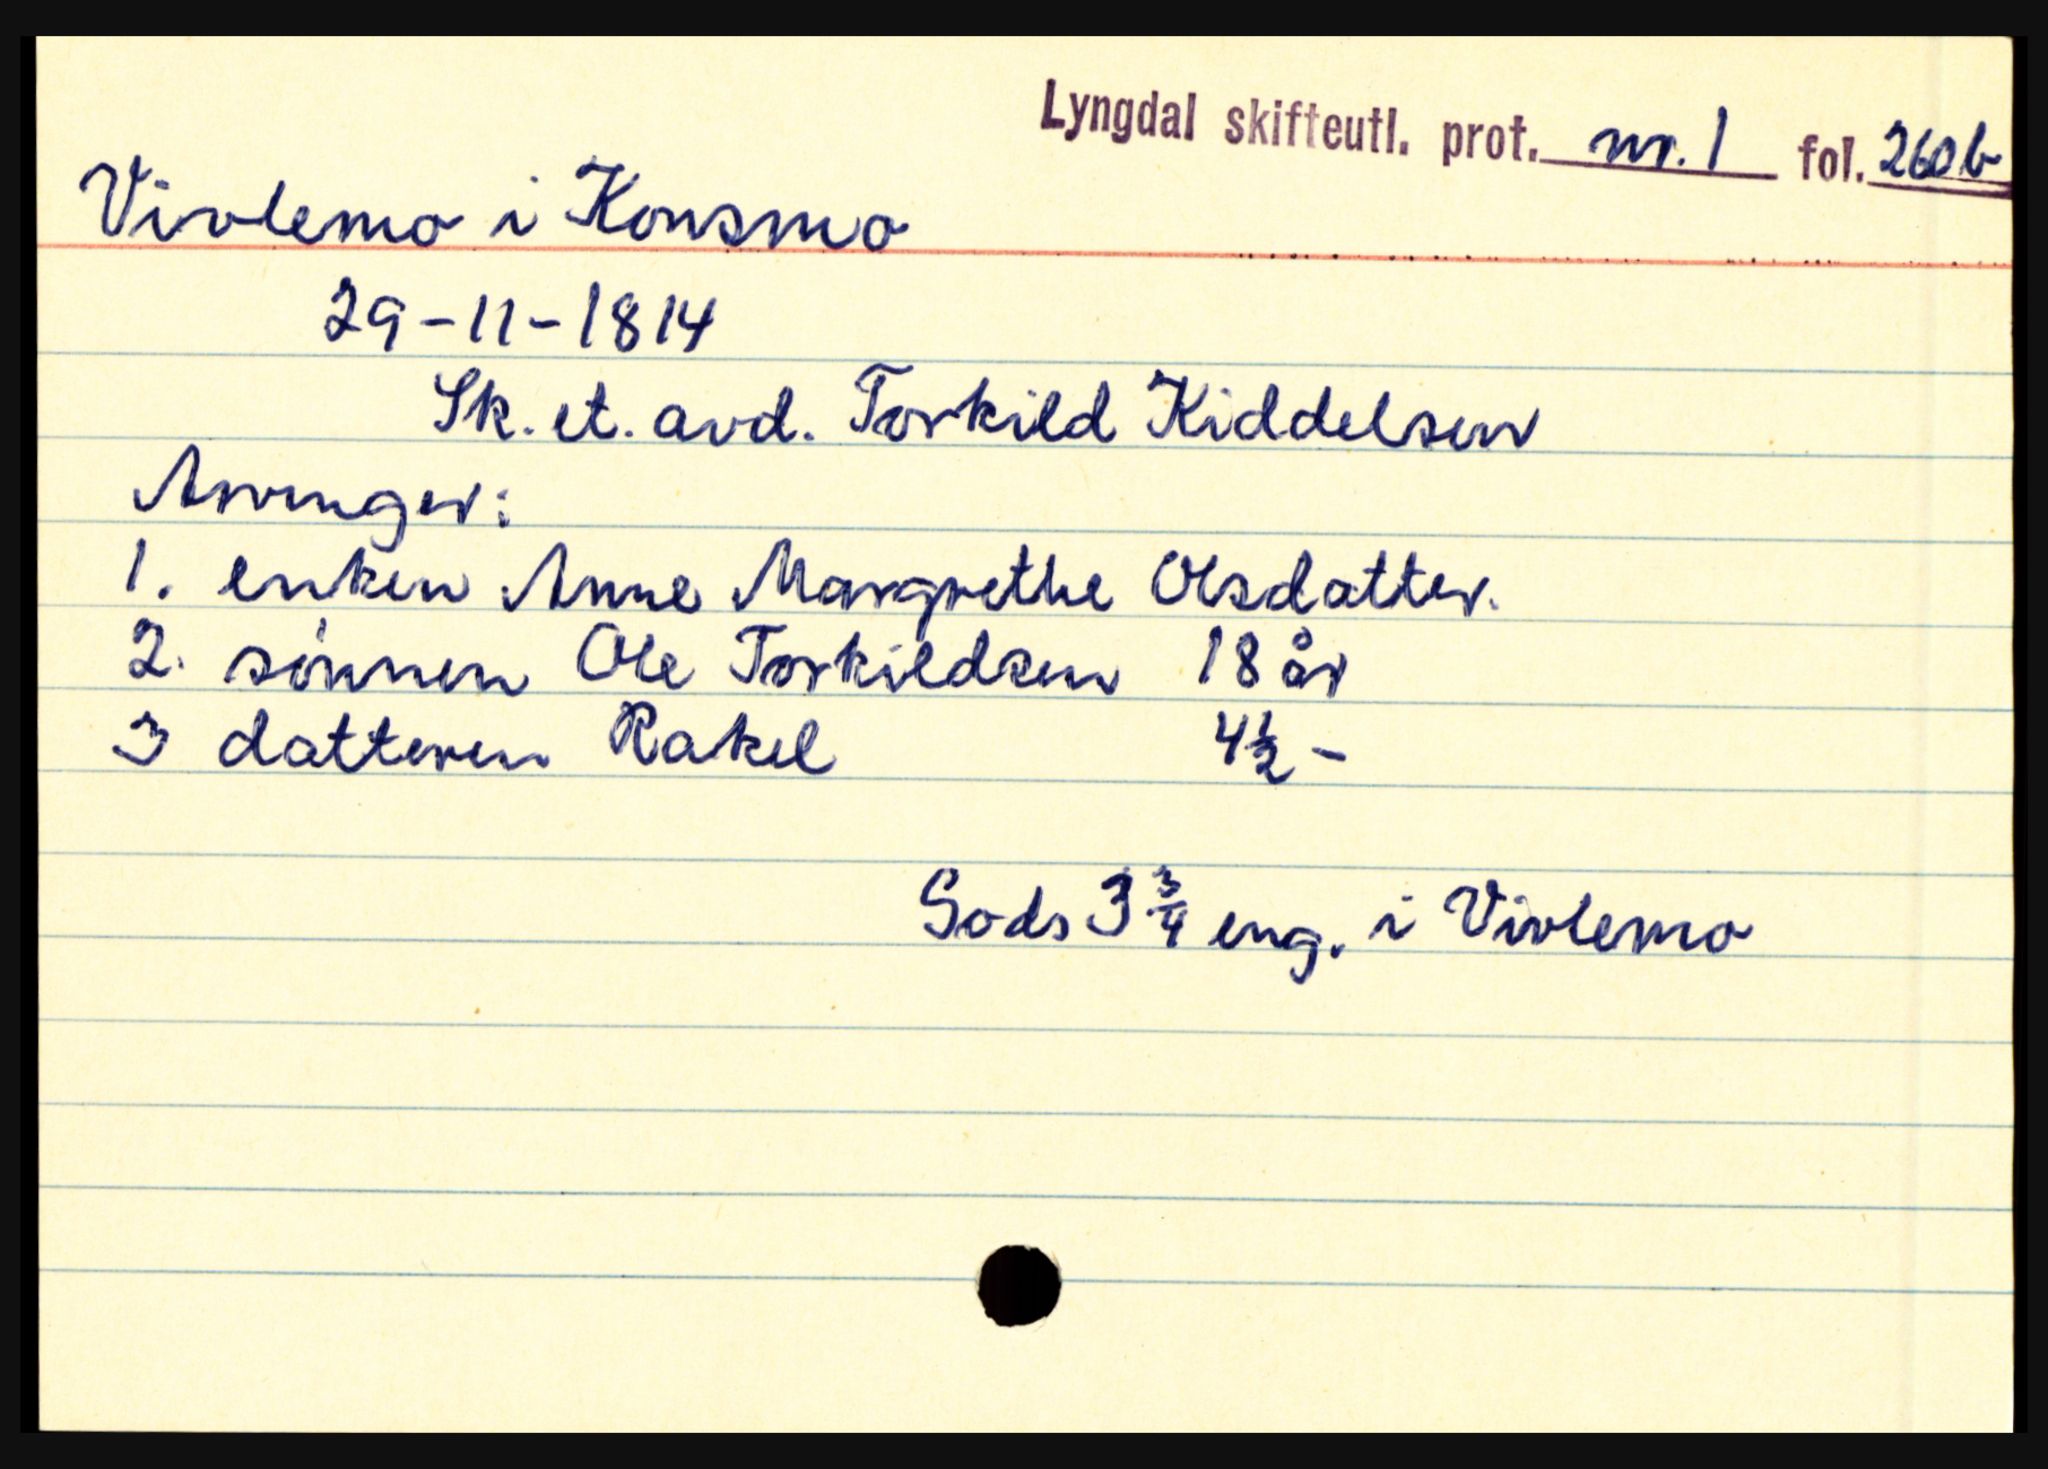 Lyngdal skifteutl. prot. nr. 1 fol. 260b
Vivlemo i Konsmo
29-11-1814
Sk. et. avd. Torkild Kiddelsen
Arvinger:
1. enken Anne Margrethe Olsdatter.
2. sønnen Ole Torkildsen 18 år
3 datteren Rakel 4½ -
Gods 3¾ eng. i Vivlemo